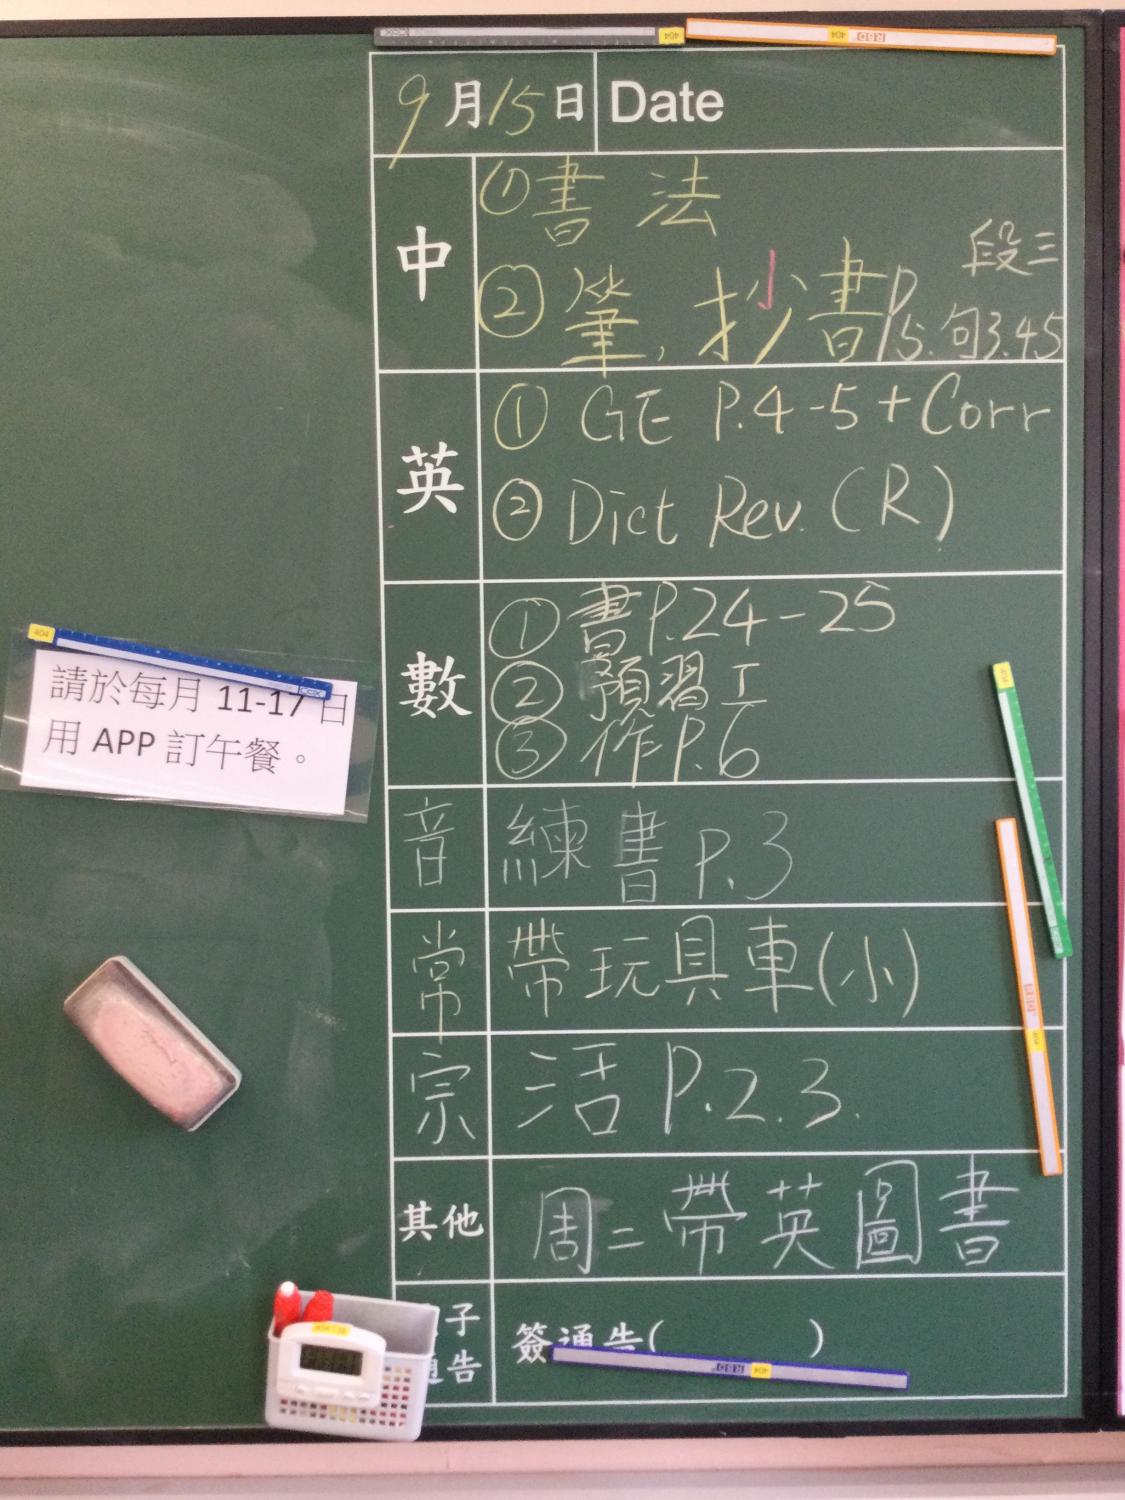 9月15日 Date
中
①書法
②筆,抄書P.5.句3.45
段三
英
① GE P.4-5+Corr
② Dict Rev.(R)
數
①書P.24-25
②預習工
③作P.6
音 練書P.3
常 帶玩具車(小)
宗 活P.2.3.
其他 周二帶英圖書
子
告
簽通告( )
請於每月 11-17 日
用 APP 訂午餐。
404
RBD